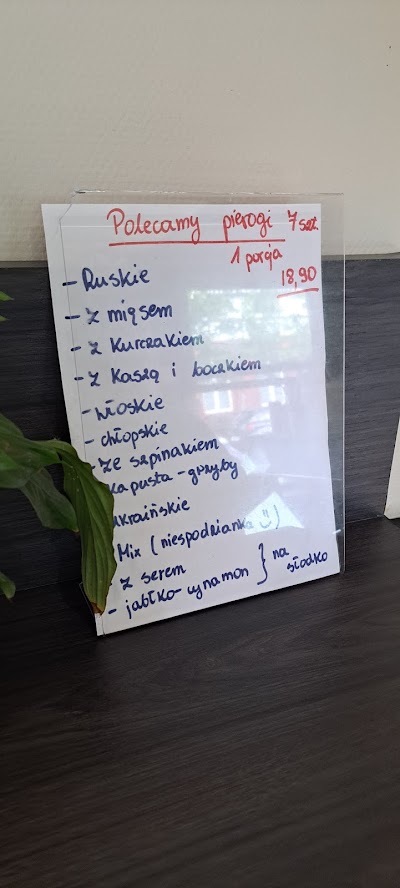 Polecamy pierogi 7 szt.
1 porcja
18,90
- Ruskie
- z mięsem
- z kurczakiem
- z kaszą i boczkiem
- włoskie
- chłopskie
- ze szpinakiem
kapusta - grzyby
ukraińskie
Mix (niespodzianka :))
z serem
- jabłko - cynamon } na słodko